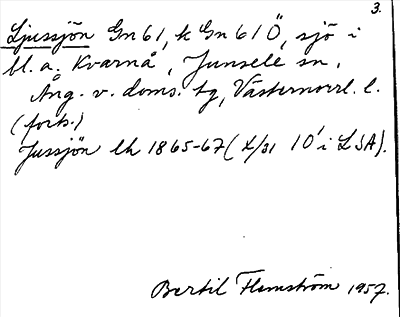 3.
Ljussjön Gn 61, k Gn 61 Ö, sjö i
bl. a. Kvarnå, Junsele sn,
Ång. v. doms. tg, Västernorrl. l.
(forts.)
Jussjön lk 1865-67 (L/31 10' i LSA).
Bertil Flemström 1957.